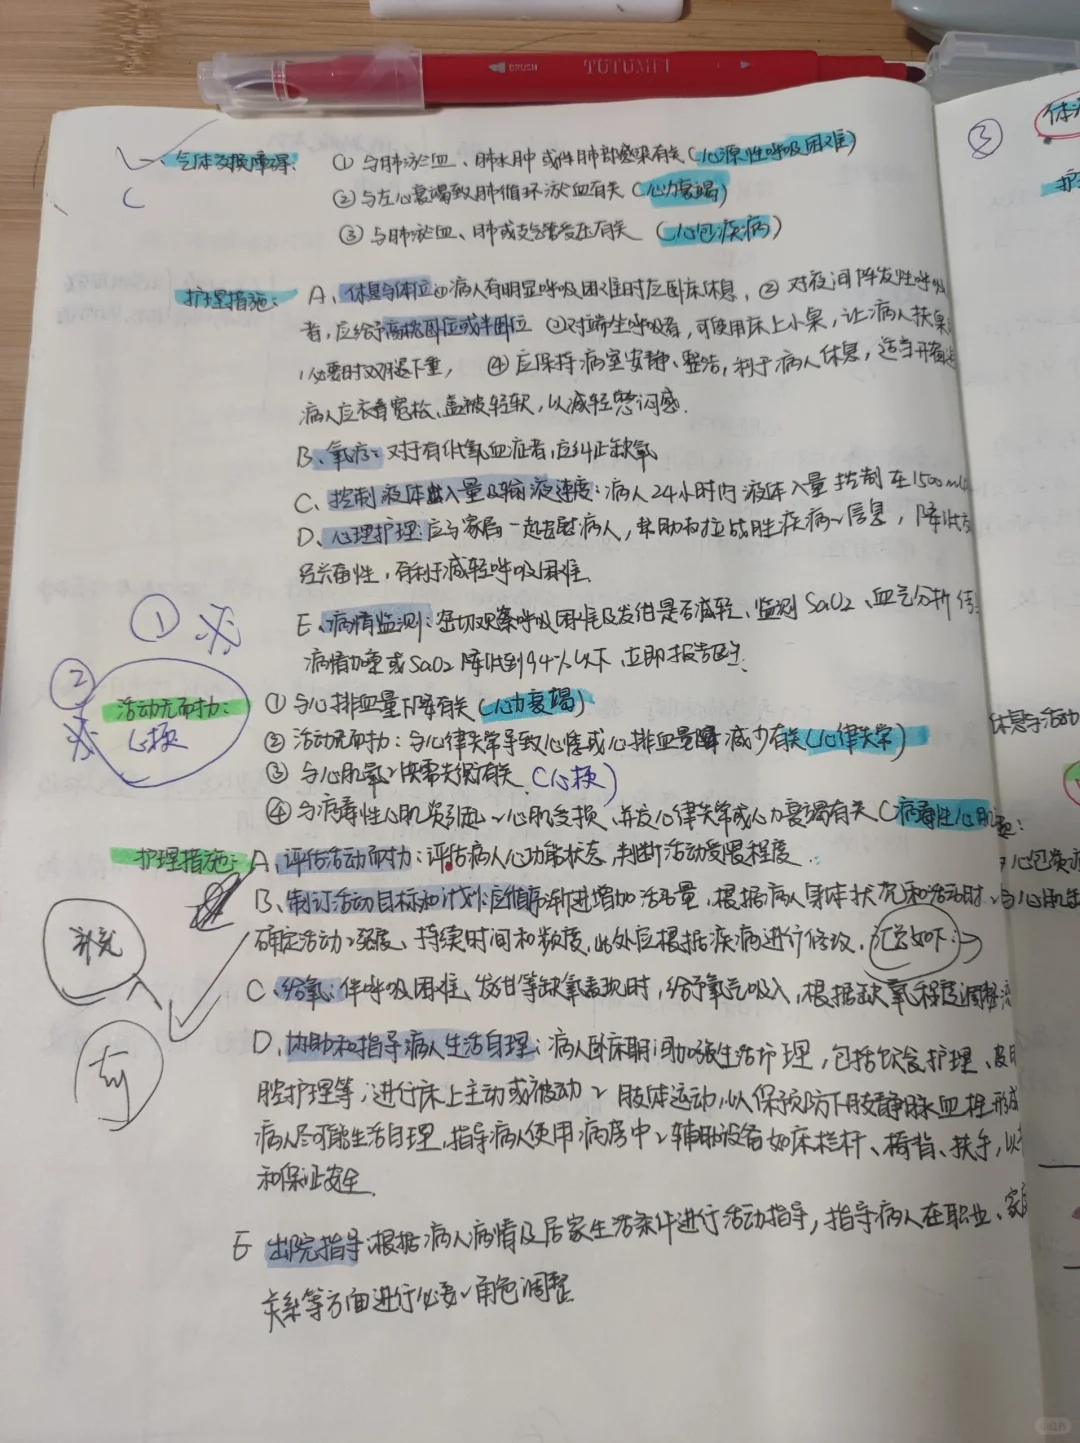 BRUSH TUTUMFI
一、气体交换障碍: ① 与肺淤血、肺水肿或伴肺部感染有关(心源性呼吸困难)
② 与左心衰竭致肺循环淤血有关(心力衰竭)
③ 与肺淤血、肺或支气管受压有关(心包疾病)
护理措施: A、休息与体位 ① 病人有明显呼吸困难时应卧床休息, ② 对夜间阵发性呼吸
者, 应给予高枕卧位或半卧位 ③ 对端坐呼吸者, 可使用床上小桌, 让病人扶桌
必要时双腿下垂, ④ 应保持病室安静、整洁, 利于病人休息, 适当开窗
病人应衣着宽松、盖被轻软, 以减轻憋闷感.
B、氧疗: 对于有低氧血症者, 应纠正缺氧
C、控制液体出入量及输液速度: 病人24小时内液体入量控制在1500ml
D、心理护理: 应与家属一起安慰病人, 帮助树立战胜疾病~信息, 降低交
感兴奋性, 有利于减轻呼吸困难.
E、病情监测: 密切观察呼吸困难及发绀是否减轻、监测SaO2、血气分析
病情加重或SaO2降低到94%以下, 立即报告医生.
①
②
活动无耐力: ① 与心排血量下降有关(心力衰竭)
心梗 ② 活动无耐力: 与心律失常导致心悸或心排血量减少有关(心律失常)
③ 与心肌氧~供需失衡有关.(心梗)
④ 与病毒性心肌炎引起~心肌受损、并发心律失常或心力衰竭有关(病毒性心肌
护理措施: A、评估活动耐力: 评估病人心功能状态, 判断活动受限程度
B、制订活动目标和计划: 应循序渐进增加活动量, 根据病人身体状况和活动时
确定活动~强度、持续时间和频度, 此处应根据疾病进行修改, 汇总如下:→
补充
C、给氧: 伴呼吸困难、发绀等缺氧表现时, 给予氧气吸入, 根据缺氧程度调整流
D、协助和指导病人生活自理: 病人卧床期间加强生活护理, 包括饮食护理、皮肤
腔护理等, 进行床上主动或被动~肢体运动, 以保预防下肢静脉血栓形成
病人尽可能生活自理, 指导病人使用病房中~辅助设备如床栏杆、椅背、扶手, 以
和保证安全.
E 出院指导: 根据病人病情及居家生活条件进行活动指导, 指导病人在职业、家庭
关系等方面进行必要~角色调整
③
体液
护
休息与活动